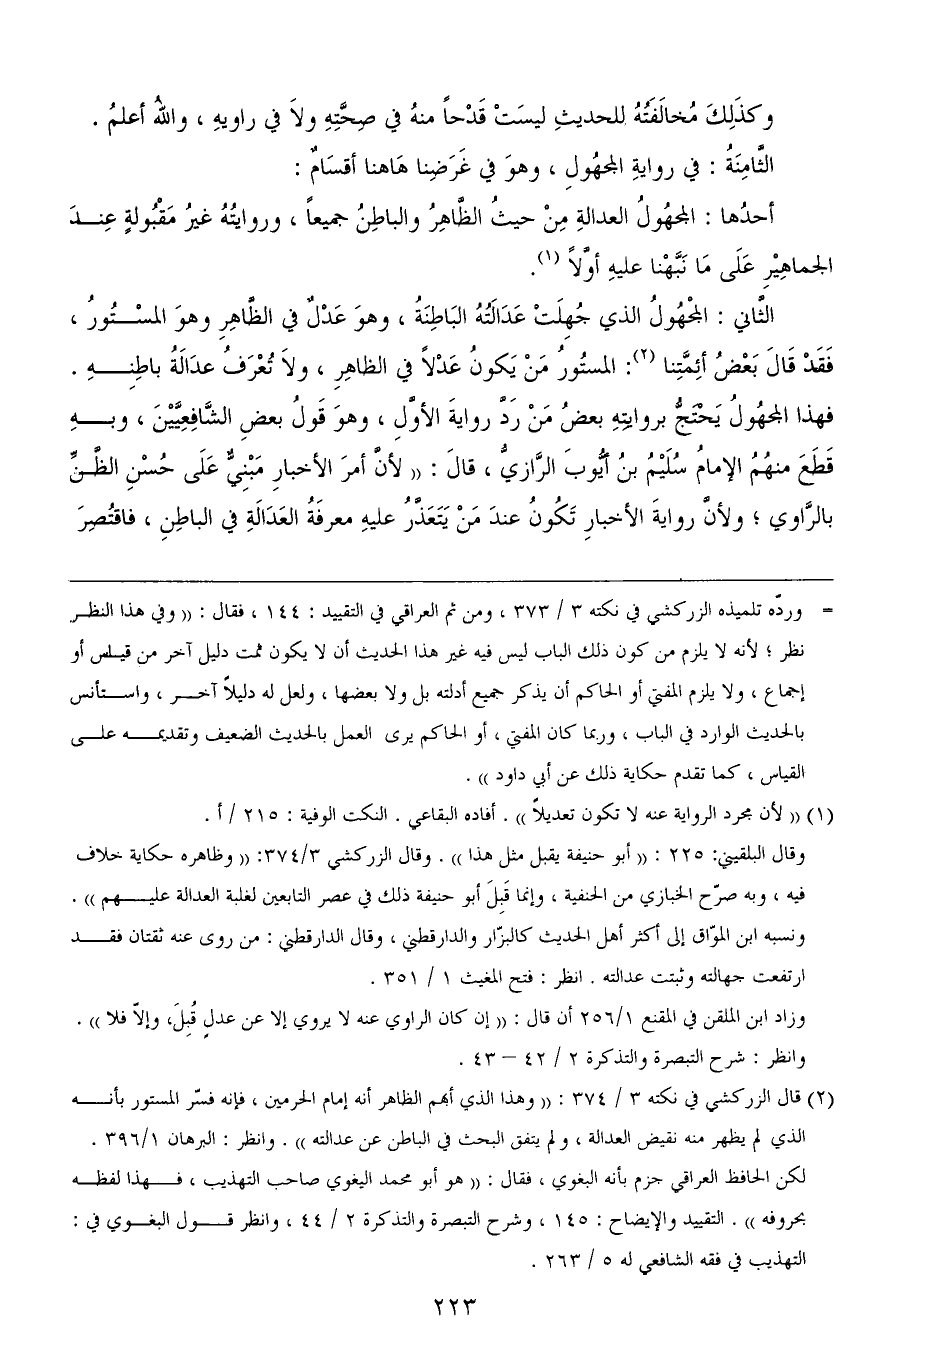 وكذَلِكَ مُخالَفَتُهُ للحديثِ ليسَتْ قَدْحاً منهُ في صِحَّتِهِ ولاَ في راويهِ ، واللهُ أعلمُ .
الثَّامِنَةُ : في روايةِ المجهُولِ ، وهوَ في غَرَضِنا هَاهنا أقسَامٌ :
أحدُها : المجهُولُ العدالةِ مِنْ حيثُ الظَّاهِرُ والباطِنُ جميعاً ، وروايتُهُ غيرُ مَقْبُولةٍ عِنـدَ
الجماهِيْرِ عَلَى مَا نَبَّهْنا عليهِ أوَّلاً (١).
الثَّاني : المْجْهُولُ الذي جُهِلَتْ عَدَالَتُهُ البَاطِنَةُ ، وهوَ عَدْلٌ في الظَّاهِرِ وهوَ المسْـتُورُ ،
فَقَدْ قَالَ بَعْضُ أئِمَّتِنا (٢): المستُورُ مَنْ يَكونُ عَدْلاً في الظاهِرِ ، ولاَ تُعْرَفُ عدالَةُ باطِنِـهِ .
فهذا المجهُولُ يَحْتَجُّ بروايتِهِ بعضُ مَنْ رَدَّ روايةَ الأوَّلِ ، وهوَ قَولُ بعضِ الشَّافِعِيَّيْنَ ، وبـهِ
قَطَعَ منهُمُ الإمامُ سُلَيْمُ بنُ أيُّوبَ الرَّازيُّ ، قالَ : (( لأنَّ أمرَ الأخبارِ مَبْنِيٌّ عَلَى حُسْنِ الظَّـنِّ
بالرَّاوي ؛ ولأنَّ روايةَ الأخبارِ تَكُونُ عندَ مَنْ يَتَعَذَّرُ عليهِ معرفَةُ العَدَالَةِ في الباطِنِ ، فاقتُصِرَ
= وردّه تلميذه الزركشي في نكته ٣ / ٣٧٣ ، ومن ثم العراقي في التقييد : ١٤٤ ، فقال : (( وفي هذا النظـر
نظر ؛ لأنه لا يلزم من كون ذلك الباب ليس فيه غير هذا الحديث أن لا يكون ثمت دليل آخر من قيـاس أو
إجماع ، ولا يلزم المفتي أو الحاكم أن يذكر جميع أدلته بل ولا بعضها ، ولعل له دليلاً آخـر ، واسـتأنس
بالحديث الوارد في الباب ، وربما كان المفتي ، أو الحاكم يرى العمل بالحديث الضعيف وتقديمـه علـى
القياس ، كما تقدم حكاية ذلك عن أبي داود )) .
(١) (( لأن مجرد الرواية عنه لا تكون تعديلاً )) . أفاده البقاعي . النكت الوفية : ٢١٥ / أ .
وقال البلقيني: ٢٢٥ : (( أبو حنيفة يقبل مثل هذا )) . وقال الزركشي ٣٧٤/٣: (( وظاهره حكاية خلاف
فيه ، وبه صرّح الخبازي من الحنفية ، وإنما قَبِلَ أبو حنيفة ذلك في عصر التابعين لغلبة العدالة عليـهم )) .
ونسبه ابن الموّاق إلى أكثر أهل الحديث كالبزّار والدارقطني ، وقال الدارقطني : من روى عنه ثقتان فقـد
ارتفعت جهالته وثبتت عدالته . انظر : فتح المغيث ١ / ٣٥١ .
وزاد ابن الملقن في المقنع ٢٥٦/١ أن قال : (( إن كان الراوي عنه لا يروي إلا عن عدلٍ قُبِلَ، وإلاّ فلا )) .
وانظر : شرح التبصرة والتذكرة ٢ / ٤٢ – ٤٣ .
(٢) قال الزركشي في نكته ٣ / ٣٧٤ : (( وهذا الذي أبهم الظاهر أنه إمام الحرمين ، فإنه فسّر المستور بأنـه
الذي لم يظهر منه نقيض العدالة ، ولم يتفق البحث في الباطن عن عدالته )) . وانظر : البرهان ٣٩٦/١ .
لكن الحافظ العراقي جزم بأنه البغوي ، فقال : (( هو أبو محمد البغوي صاحب التهذيب ، فـهذا لفظـه
بحروفه )) . التقييد والإيضاح : ١٤٥ ، وشرح التبصرة والتذكرة ٢ / ٤٤ ، وانظر قـول البغـوي في :
التهذيب في فقه الشافعي له ٥ / ٢٦٣ .
٢٢٣